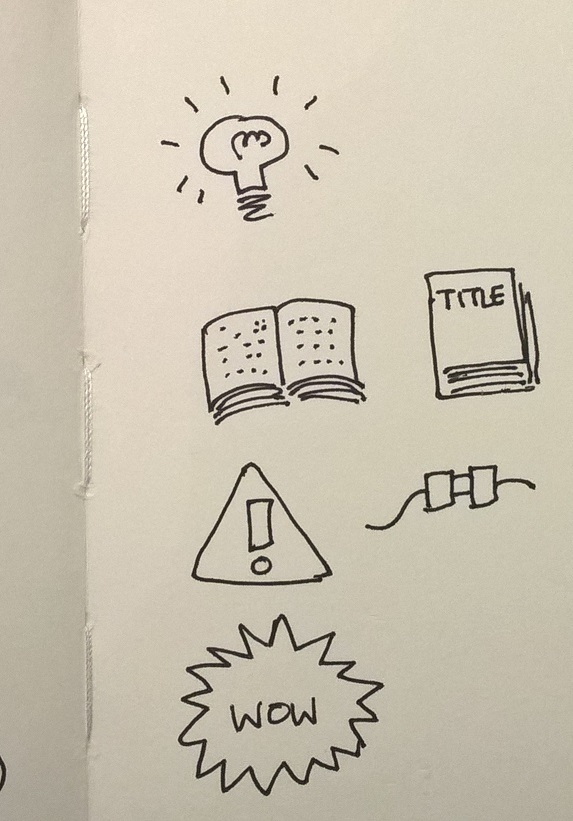 TITLE
WOW